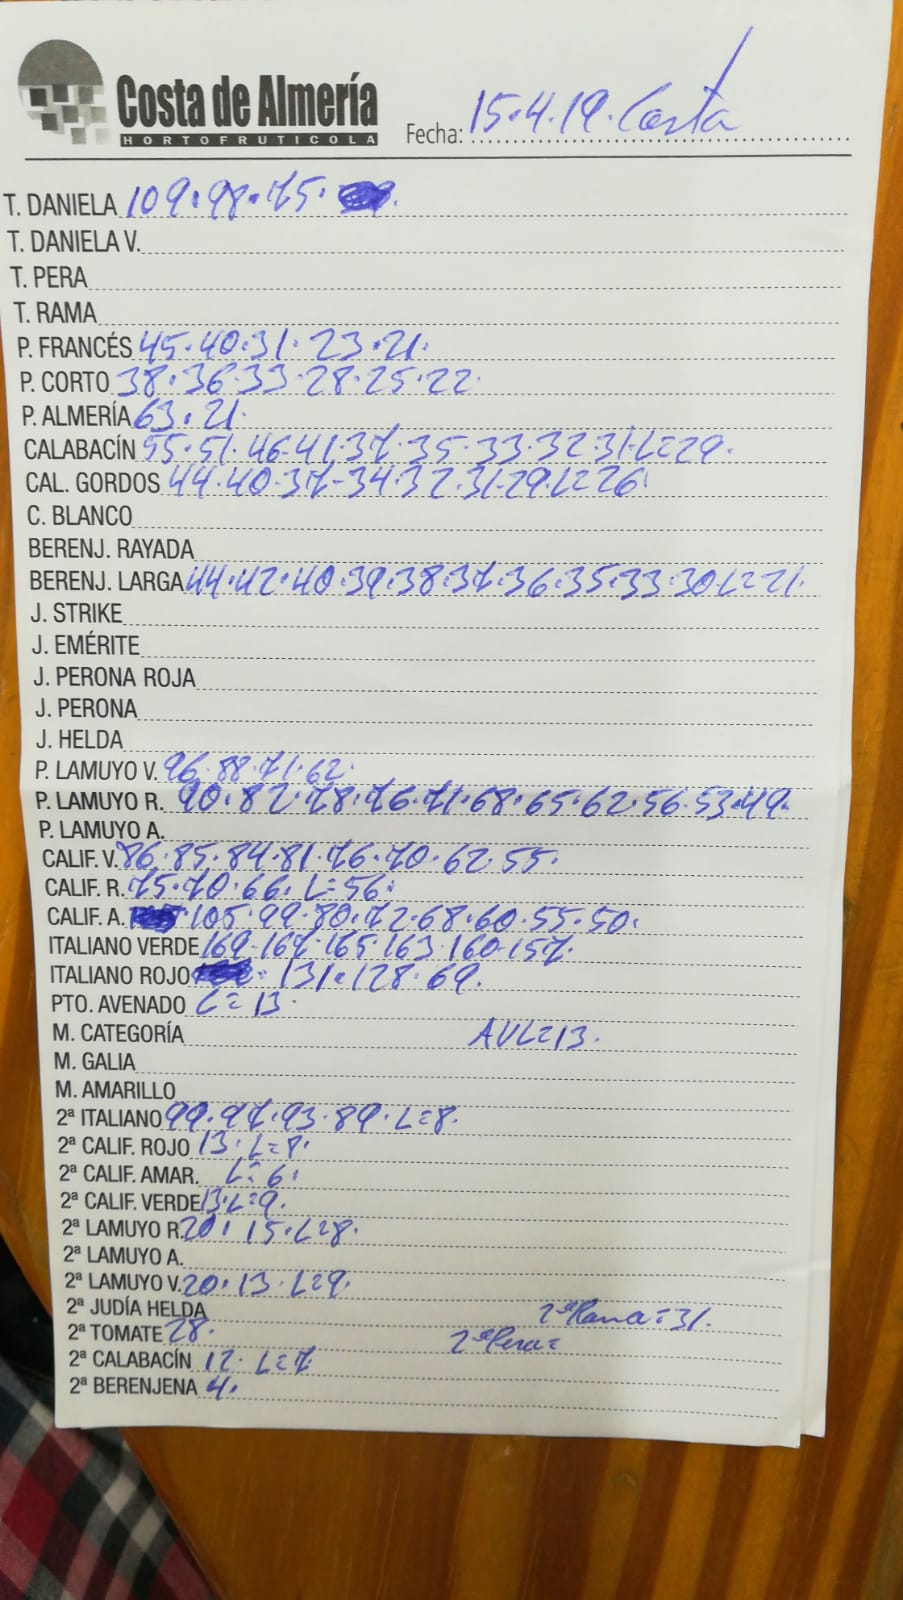 Costa de Almería
HORTOFRUTICOLA
Fecha: 15.4.19. Costa
T. DANIELA 109.98.75.
T. DANIELA V.
T. PERA
T. RAMA
P. FRANCÉS 45.40.31.23.21.
P. CORTO 38.36.33.28.25.22.
P. ALMERÍA 63.21.
CALABACÍN 55.51.46-41.37.35.33.32.31.L=29.
CAL. GORDOS 44.40.37-34.32.31.29.L=26.
C. BLANCO
BERENJ. RAYADA
BERENJ. LARGA 44.42.40.39.38.37.36.35.33.30.L=21.
J. STRIKE
J. EMÉRITE
J. PERONA ROJA
J. PERONA
J. HELDA
P. LAMUYO V. 96.88.71.62.
P. LAMUYO R. 90.82.78.76.71.68.65.62.56.53.49.
P. LAMUYO A.
CALIF. V. 86.85.84.81.76.70.62.55.
CALIF. R. 75.70.66.L=56.
CALIF. A. 105.99.80.72.68.60.55.50.
ITALIANO VERDE 169.167.165.163.160.157.
ITALIANO ROJO 131.128.69.
PTO. AVENADO L=13.
M. CATEGORÍA AVL=13.
M. GALIA
M. AMARILLO
2ª ITALIANO 99.97.93.89.L=8.
2ª CALIF. ROJO 13.L=
2ª CALIF. AMAR. L=6.
2ª CALIF. VERDE 13.L=9.
2ª LAMUYO R. 20.15.L=8.
2ª LAMUYO A.
2ª LAMUYO V. 20.13.L=9.
2ª JUDÍA HELDA 2ª Rama=31.
2ª TOMATE 28. 2ª Pera=
2ª CALABACÍN 12.L=7
2ª BERENJENA 4.